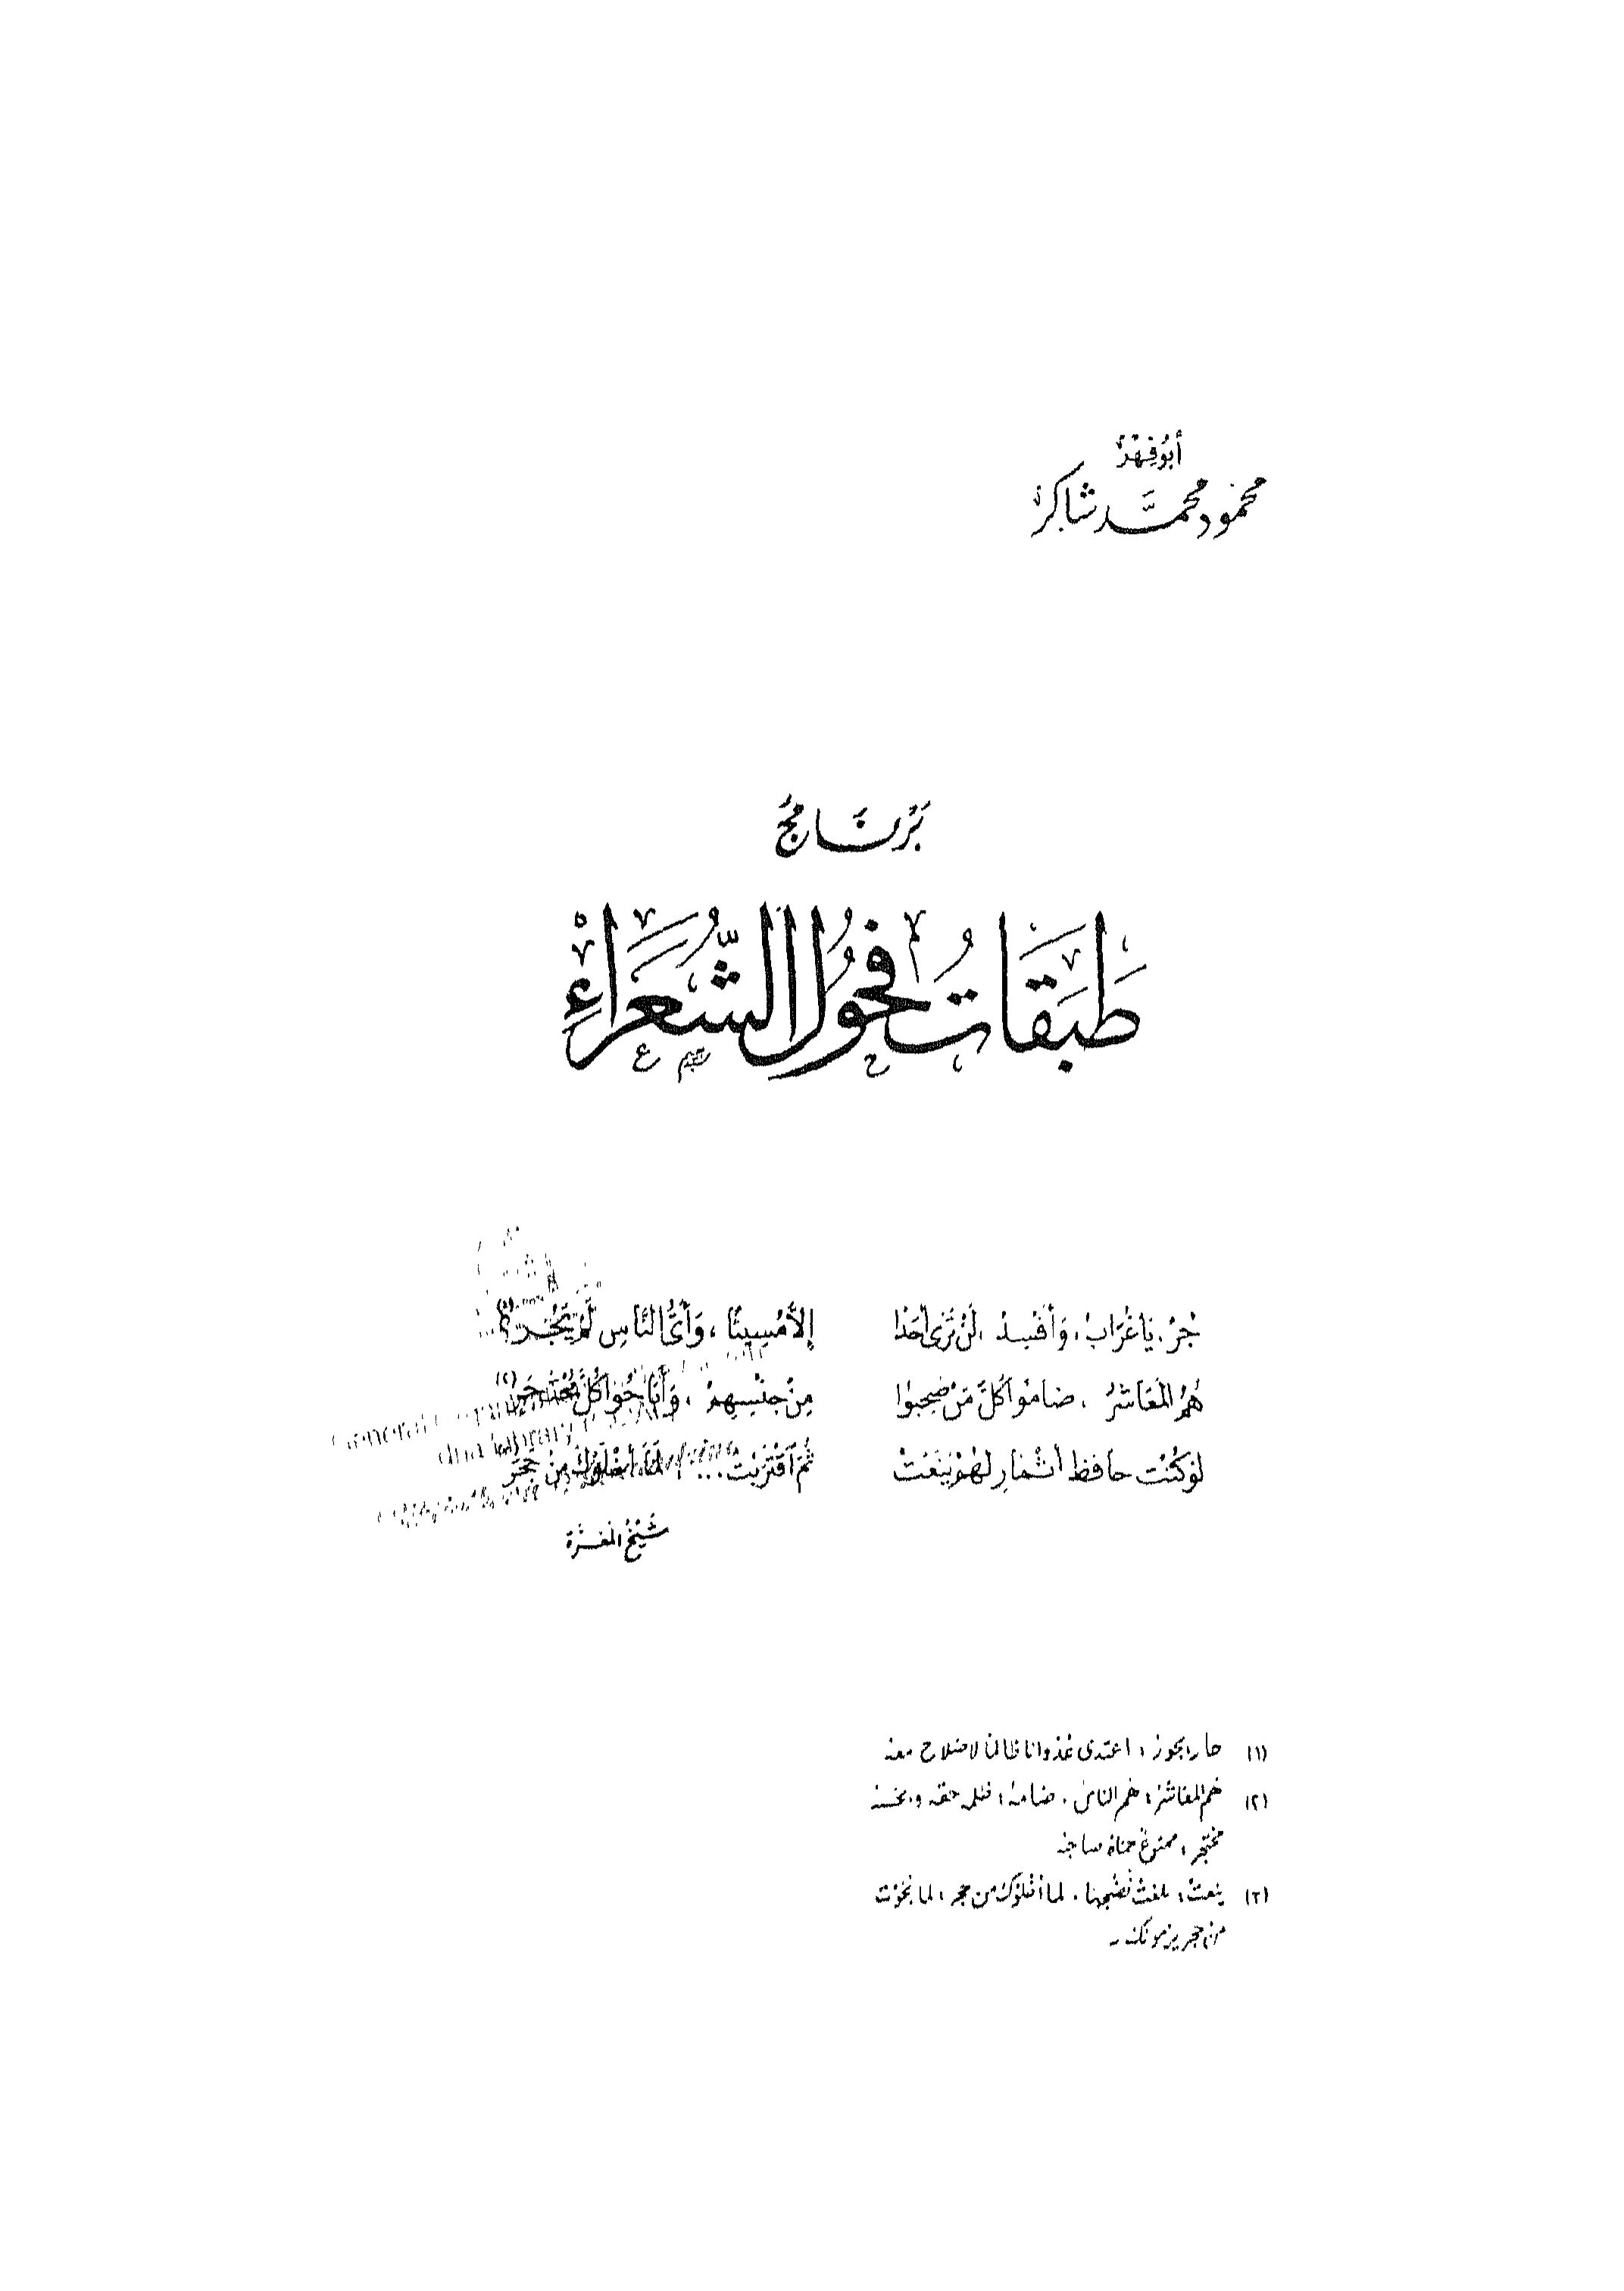 أبُو فِهْر
محمُود محمَّد شاكر
بَرْنَامَجُ
طَبَقَاتِ فُحُولِ الشُّعَرَاءِ
جُرْ، يَا غُرَابُ، وَأَفْسِدْ، لَنْ تَرَى أَحَدًا إِلَّا مُسِيئًا، وَأَيُّ النَّاسِ لَمْ يَجُرِ؟
هُمُ الْمَعَاشِرُ، ضَامُوا كُلَّ مَنْ صَحِبُوا مِنْ جِنْسِهِمْ، وَأَبَاحُوا كُلَّ مُحْتَجَرِ (٢)
لَوْ كُنْتَ حَافِظَ أَثْمَارٍ لَهُمْ يَنَعَتْ ثُمَّ اقْتَرَبْتَ... لَمَا أَخْلَوْكَ مِنْ حَجَرِ
شَيْخُ المَعَرَّة
(١) جار يجوز: اعتدى عُدوانا ظالما لا صلاح معه
(٢) هُمُ المعاشرُ: هُم الناسُ. ضامهُ: ظلمه حقه وبخسه
مُحْتَجر: ممنوعٌ حماهُ صاحبه
(٣) ينعتْ: بلغتْ نُضْجها. لما أخلَوْك من حجر: لما نجوْتَ
من حجر يرمونك به
General Organization
and Library